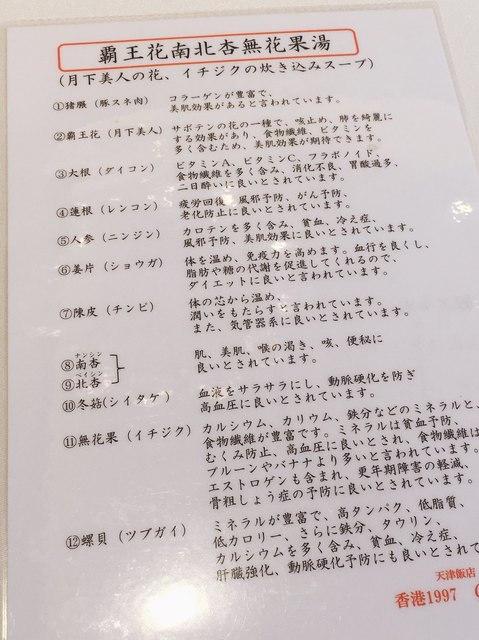 覇王花南北杏無花果湯
(月下美人の花、イチジクの炊き込みスープ)
①猪𦟌（豚スネ肉） コラーゲンが豊富で、
美肌効果があると言われています。
②覇王花（月下美人） サボテンの花の一種で、咳止め、肺を綺麗に
する効果があり、食物繊維、ビタミンを
多く含むため、美肌効果が期待できます。
③大根（ダイコン） ビタミンA、ビタミンC、フラボノイド、
食物繊維を多く含み、消化不良、胃酸過多、
二日酔いに良いとされています。
④蓮根（レンコン） 疲労回復、風邪予防、がん予防、
老化防止に良いとされています。
⑤人参（ニンジン） カロテンを多く含み、貧血、冷え症、
風邪予防、美肌効果に良いとされています。
⑥姜片（ショウガ） 体を温め、免疫力を高めます。血行を良くし、
脂肪や糖の代謝を促進してくれるので、
ダイエットに良いと言われています。
⑦陳皮（チンピ） 体の芯から温め、
潤いをもたらすと言われています。
また、気管器系に良いとされています。
ナンシン
⑧南杏
ペイシン
⑨北杏
肌、美肌、喉の渇き、咳、便秘に
良いとされています。
⑩冬菇(シイタケ) 血液をサラサラにし、動脈硬化を防ぎ
高血圧に良いとされています。
⑪無花果（イチジク） カルシウム、カリウム、鉄分などのミネラルと、
食物繊維が豊富です。ミネラルは貧血予防、
むくみ防止、高血圧に良いとされ、食物繊維は
プルーンやバナナより多いと言われています。
エストロゲンも含まれ、更年期障害の軽減、
骨粗しょう症の予防に良いとされています。
⑫螺貝（ツブガイ） ミネラルが豊富で、高タンパク、低脂質、
低カロリー、さらに鉄分、タウリン、
カルシウムを多く含み、貧血、冷え症、
肝臓強化、動脈硬化予防にも良いとされて
天津飯店
香港1997